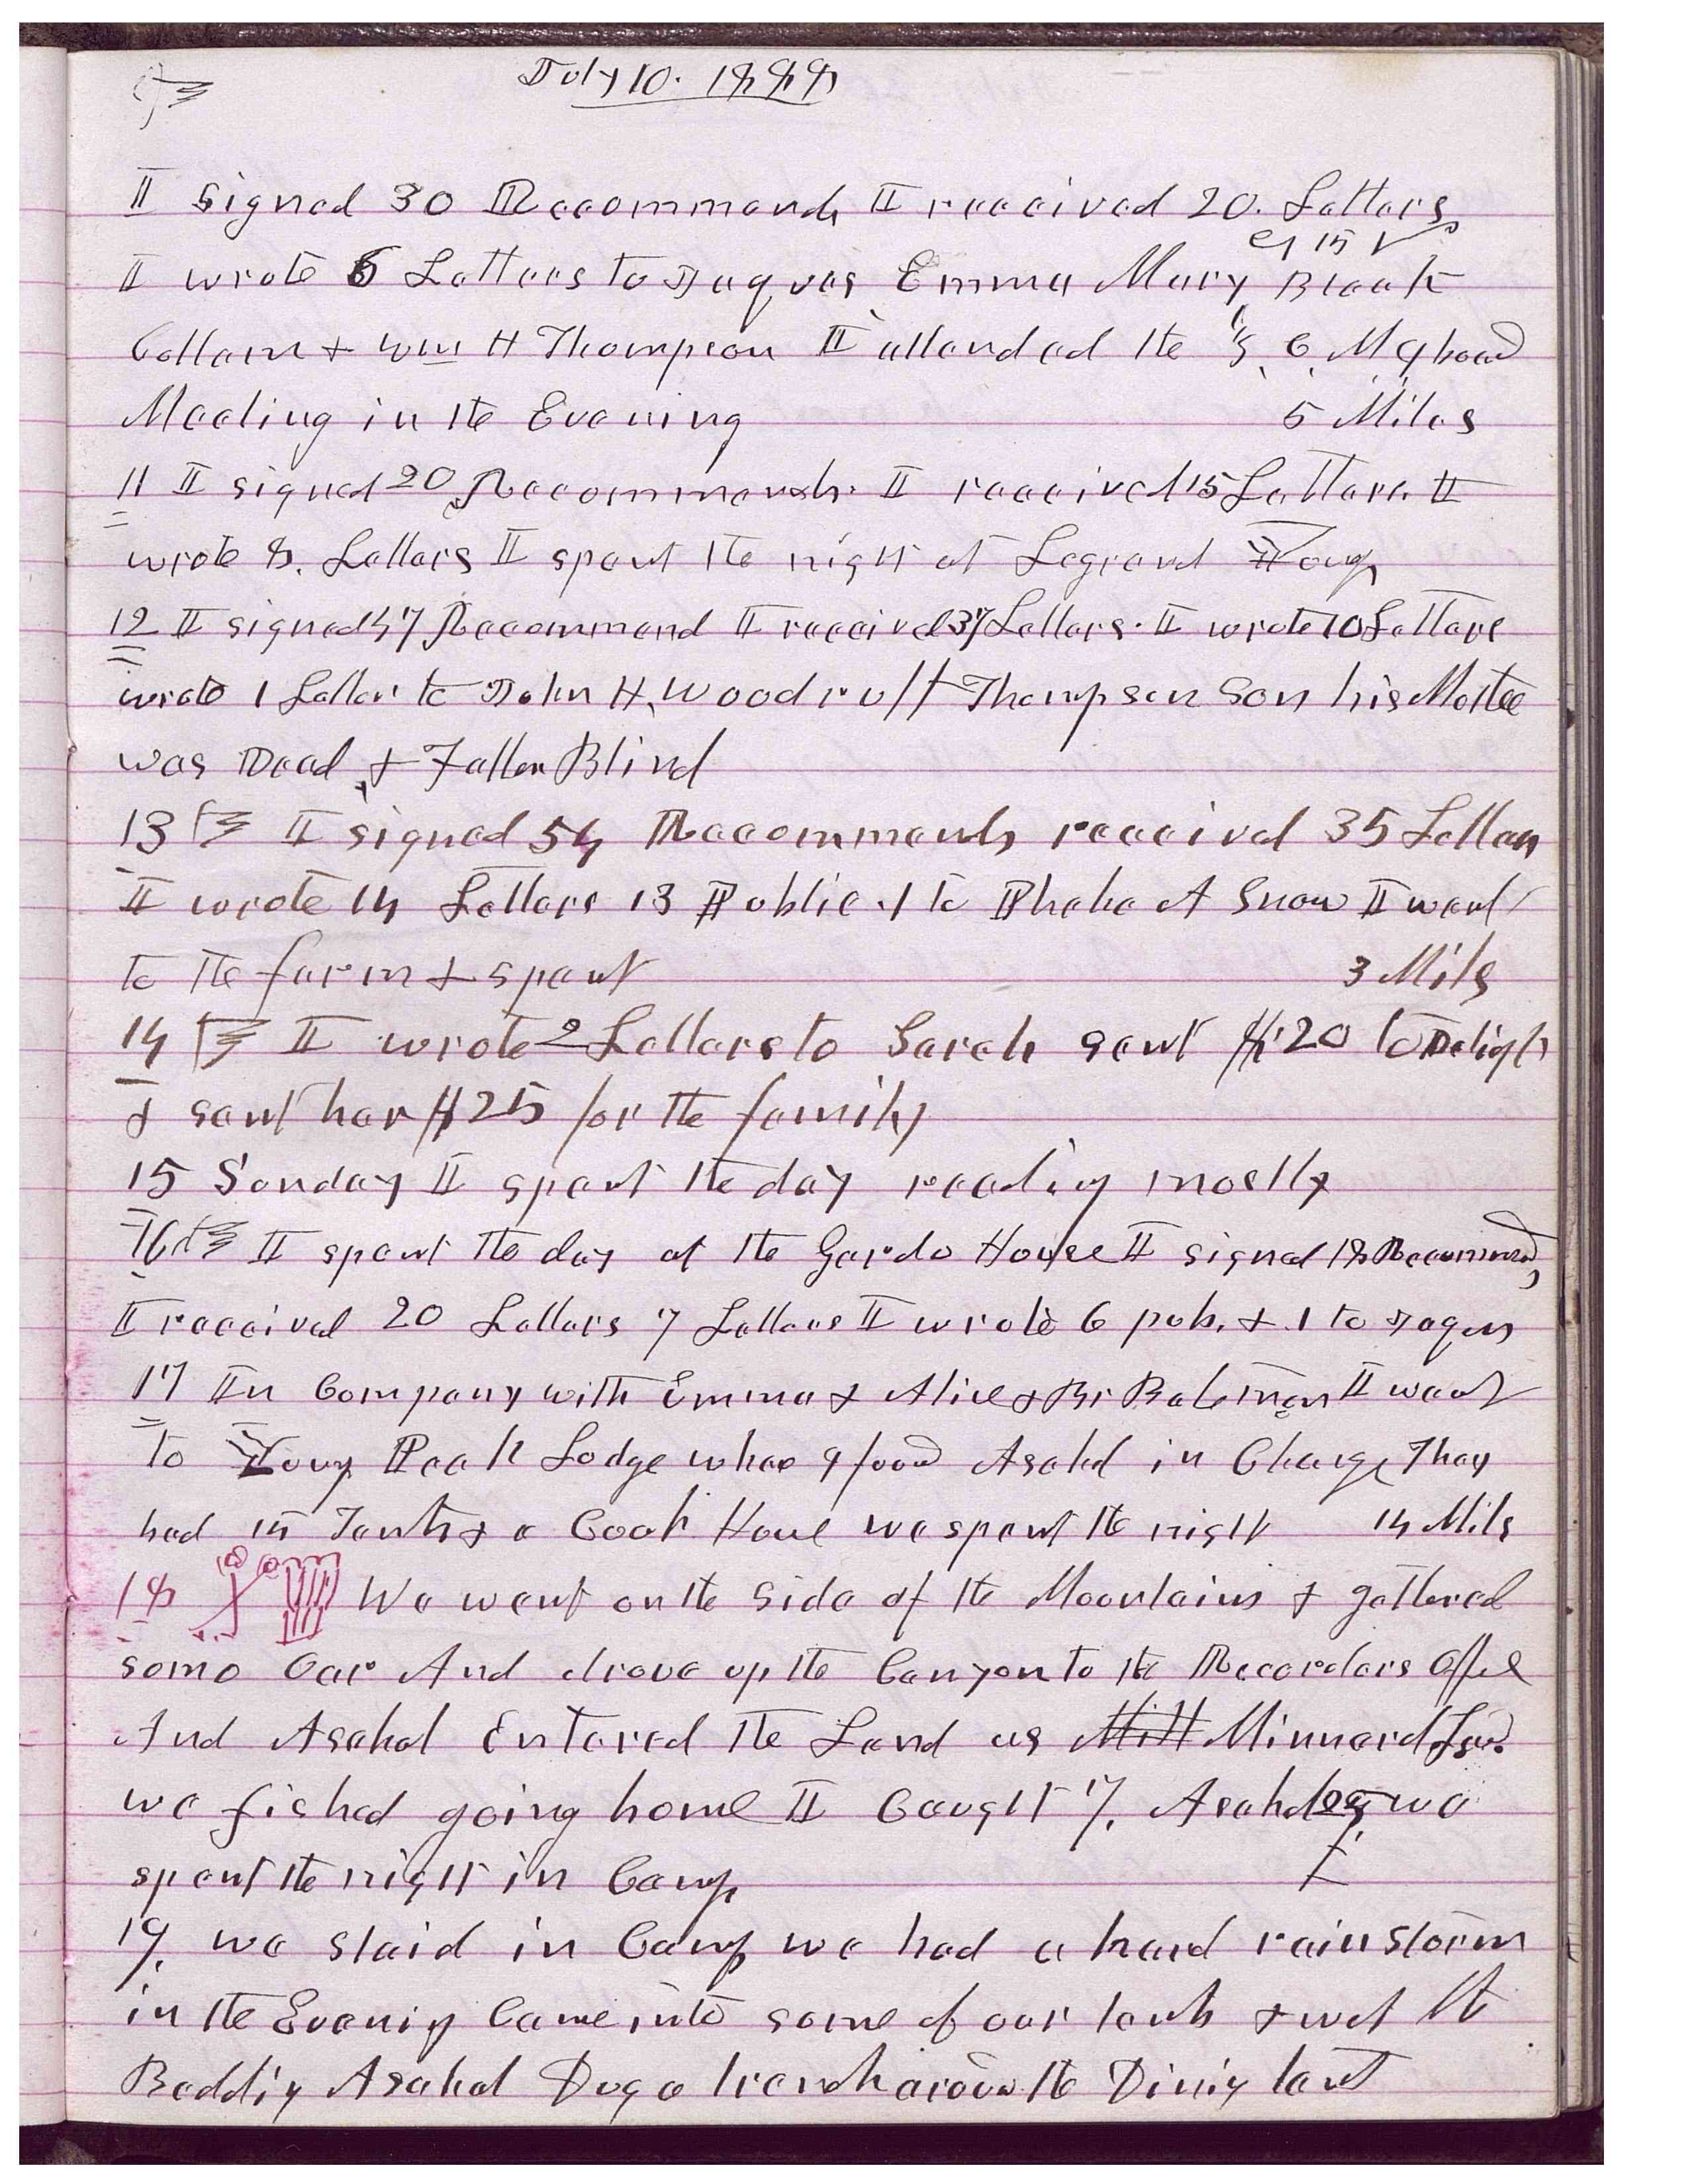 July 10. 1888
I signed 30 Recommends I received 20. Letters
I wrote 6 Letters to Jaques Emma Mary Black
Cottam & Wm H Thompson I attended the Y. C. M
Meeting in the Evening 5 Miles
11 I signed 20 Recommends. I received 15 Letters. I
wrote 8. Letters I spent the night at Legrand Young
12 I signed 47 Recommend I received 37 Letters. I wrote 10 Letters
wrote 1 Letter to John H. Woodruff Thompson Son his Mother
was Dead & Father Blind
13 I signed 54 Recommends received 35 Letters
I wrote 14 Letters 13 Public 1 to Phebe A Snow I went
to the farm & spent 3 Mils
14 I wrote 2 Letters to Sarah sent $20 to Delight
& sent her $25 for the family
15 Sunday I spent the day reading mostly
16 I spent the day at the Gardo House I signed 18 Recommend,
I received 20 Letters 7 Letters I wrote 6 pub. & 1 to Jaques
17 In Company with Emma & Alice & Br Bateman I went
to Lony Peak Lodge whare I found Asahel in Charge They
had 15 Tents & a Cook House we spent the night 14 Mils
18 We went on the side of the Mountains & gathered
some Oar And drove up the Canyon to the Recorders Office
And Asahel Entered the Land as Mill Minnard Land.
we fished going home I Caught 7. Asahel 25 we
spent the night in Camp
19. we staid in Camp we had a hard rain storm
in the Evenig Came into some of our tents & wet the
Beddig Asahel Dug a trench around the Dinig tent